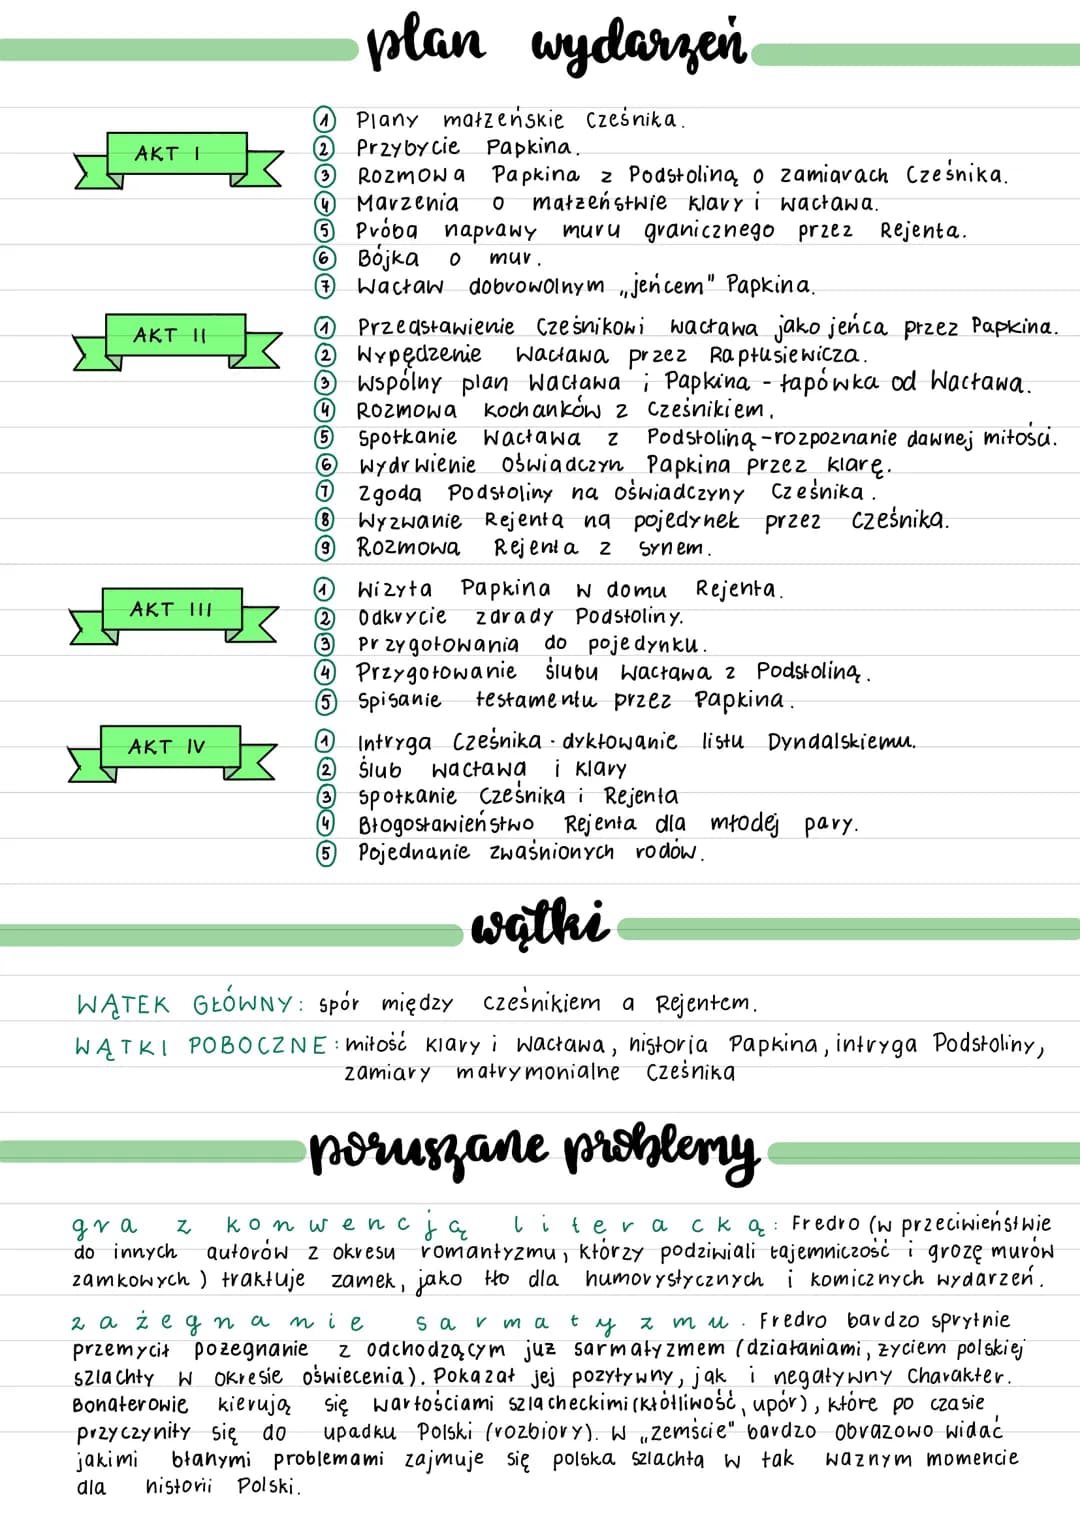 plan wydarzeń
AKT I
① Plany małżeńskie Cześnika.
② Przybycie Papkina.
③ Rozmowa Papkina z Podstoliną o zamiarach Cześnika.
④ Marzenia o małżeństwie Klary i Wacława.
⑤ Próba naprawy muru granicznego przez Rejenta.
⑥ Bójka o mur.
⑦ Wacław dobrowolnym „jeńcem" Papkina.
AKT II
① Przedstawienie Cześnikowi Wacława jako jeńca przez Papkina.
② Wypędzenie Wacława przez Raptusiewicza.
③ Wspólny plan Wacława i Papkina - łapówka od Wacława.
④ Rozmowa kochanków z Cześnikiem.
⑤ Spotkanie Wacława z Podstoliną - rozpoznanie dawnej miłości.
⑥ Wydrwienie Oświadczyn Papkina przez Klarę.
⑦ Zgoda Podstoliny na oświadczyny Cześnika.
⑧ Wyzwanie Rejenta na pojedynek przez Cześnika.
⑨ Rozmowa Rejenta z synem.
AKT III
① Wizyta Papkina w domu Rejenta.
② Odkrycie zdrady Podstoliny.
③ Przygotowania do pojedynku.
④ Przygotowanie ślubu Wacława z Podstoliną.
⑤ Spisanie testamentu przez Papkina.
AKT IV
① Intryga Cześnika - dyktowanie listu Dyndalskiemu.
② Ślub Wacława i Klary
③ Spotkanie Cześnika i Rejenta
④ Błogosławieństwo Rejenta dla młodej pary.
⑤ Pojednanie zwaśnionych rodów.
wątki
WĄTEK GŁÓWNY: spór między Cześnikiem a Rejentem.
WĄTKI POBOCZNE: miłość Klary i Wacława, historia Papkina, intryga Podstoliny,
zamiary matrymonialne Cześnika
poruszane problemy
gra z konwencją literacką: Fredro (w przeciwieństwie
do innych autorów z okresu romantyzmu, którzy podziwiali tajemniczość i grozę murów
zamkowych) traktuje zamek, jako tło dla humorystycznych i komicznych wydarzeń.
zażegnanie sarmatyzmu. Fredro bardzo sprytnie
przemycił pożegnanie z odchodzącym już sarmatyzmem (działaniami, życiem polskiej
szlachty w okresie oświecenia). Pokazał jej pozytywny, jak i negatywny charakter.
Bohaterowie kierują się wartościami szlacheckimi (kłótliwość, upór), które po czasie
przyczyniły się do upadku Polski (rozbiory). W „zemście" bardzo obrazowo widać
jakimi błahymi problemami zajmuje się polska szlachta w tak ważnym momencie
dla historii Polski.